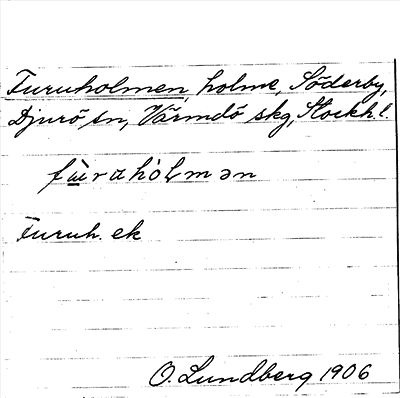 Furuholmen, holme, Söderby,
Djurö sn, Värmdö skg, Stockh. l.
fùraholmən
Furuh. ek
O. Lundberg 1906